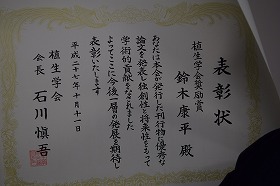 表彰状
植生学会奨励賞
鈴木康平 殿
あなたは本会が発行した刊行物に優秀な
論文を発表し独創性と将来性をもって
学術的貢献をなされました
よってここに今後一層の発展を期待し
表彰いたします
平成二十七年十月十一日
植生学会
会長 石川愼吾